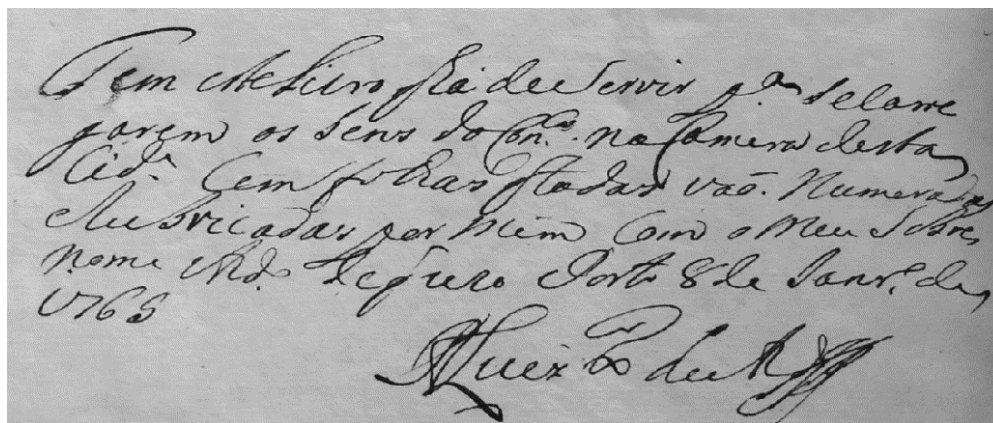 Tem este Livro q̃ ha de servir p.ª se carre
garem os bens do Con.º na Camera desta
Cid.e Cem folhas q̃ todas vaõ Numeradas
e Rubricadas por mim com o meu Sobre
nome de Porto 8 de Janr.º de
1765
Luiz de